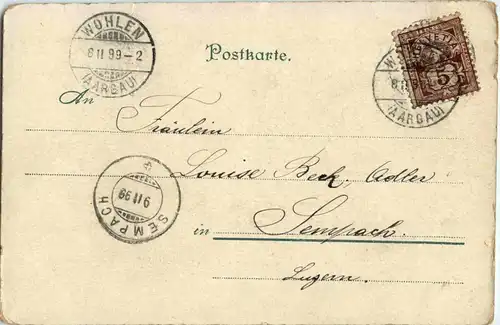 WOHLEN
8 II 99 – 2
(AARGAU)
Postkarte.
HELVETIA
5
(AARGAU)
An
Fräulein
Louise Beck, Adler
in Sempach.
Luzern.
SEMPACH
9 II 99